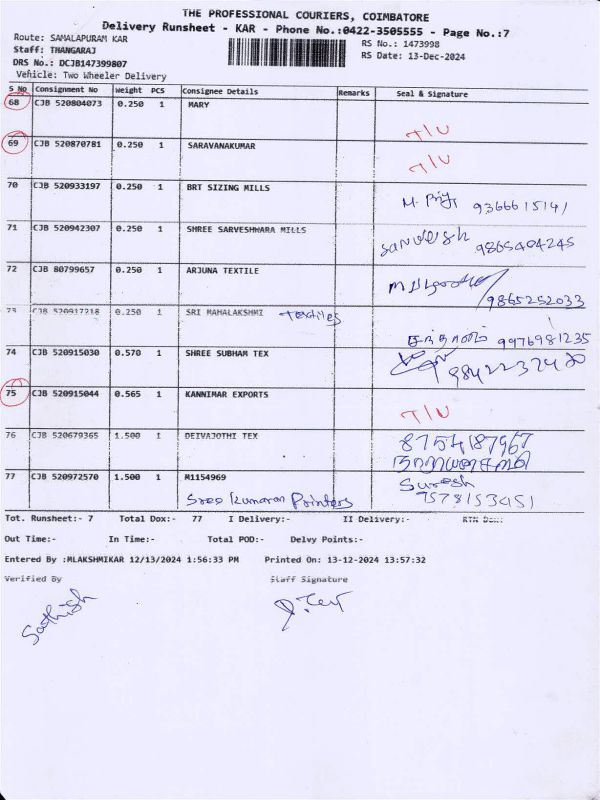 THE PROFESSIONAL COURIERS, COIMBATORE
Delivery Runsheet - KAR - Phone No.:0422-3505555 - Page No.:7
Route: SAMALAPURAM KAR
RS No.: 1473998
Staff: THANGARAJ
RS Date: 13-Dec-2024
DRS No.: DCJB147399807
Vehicle: Two Wheeler Delivery
S No Consignment No Weight PCS Consignee Details Remarks Seal & Signature
68 CJB 520804073 0.250 1 MARY T/U
69 CJB 520870781 0.250 1 SARAVANAKUMAR T/U
70 CJB 520933197 0.250 1 BRT SIZING MILLS M. 9366615141
71 CJB 520942307 0.250 1 SHREE SARVESHWARA MILLS 9865404245
72 CJB 80799657 0.250 1 ARJUNA TEXTILE 9865252033
73 CJB 520917218 0.250 1 SRI MAHALAKSHMI Textiles சந்தானம் 9976981235
74 CJB 520915030 0.570 1 SHREE SUBHAM TEX
75 CJB 520915044 0.565 1 KANNIMAR EXPORTS T/U
76 CJB 520679365 1.500 1 DEIVAJOTHI TEX 8754187967
77 CJB 520972570 1.500 1 M1154969 Suresh
Sree Kumaran Printers
Tot. Runsheet:- 7 Total Dox:- 77 I Delivery:- II Delivery:- RTN Dox:
Out Time:- In Time:- Total POD:- Delvy Points:-
Entered By :MLAKSHMIKAR 12/13/2024 1:56:33 PM Printed On: 13-12-2024 13:57:32
Verified By Staff Signature
Sathish